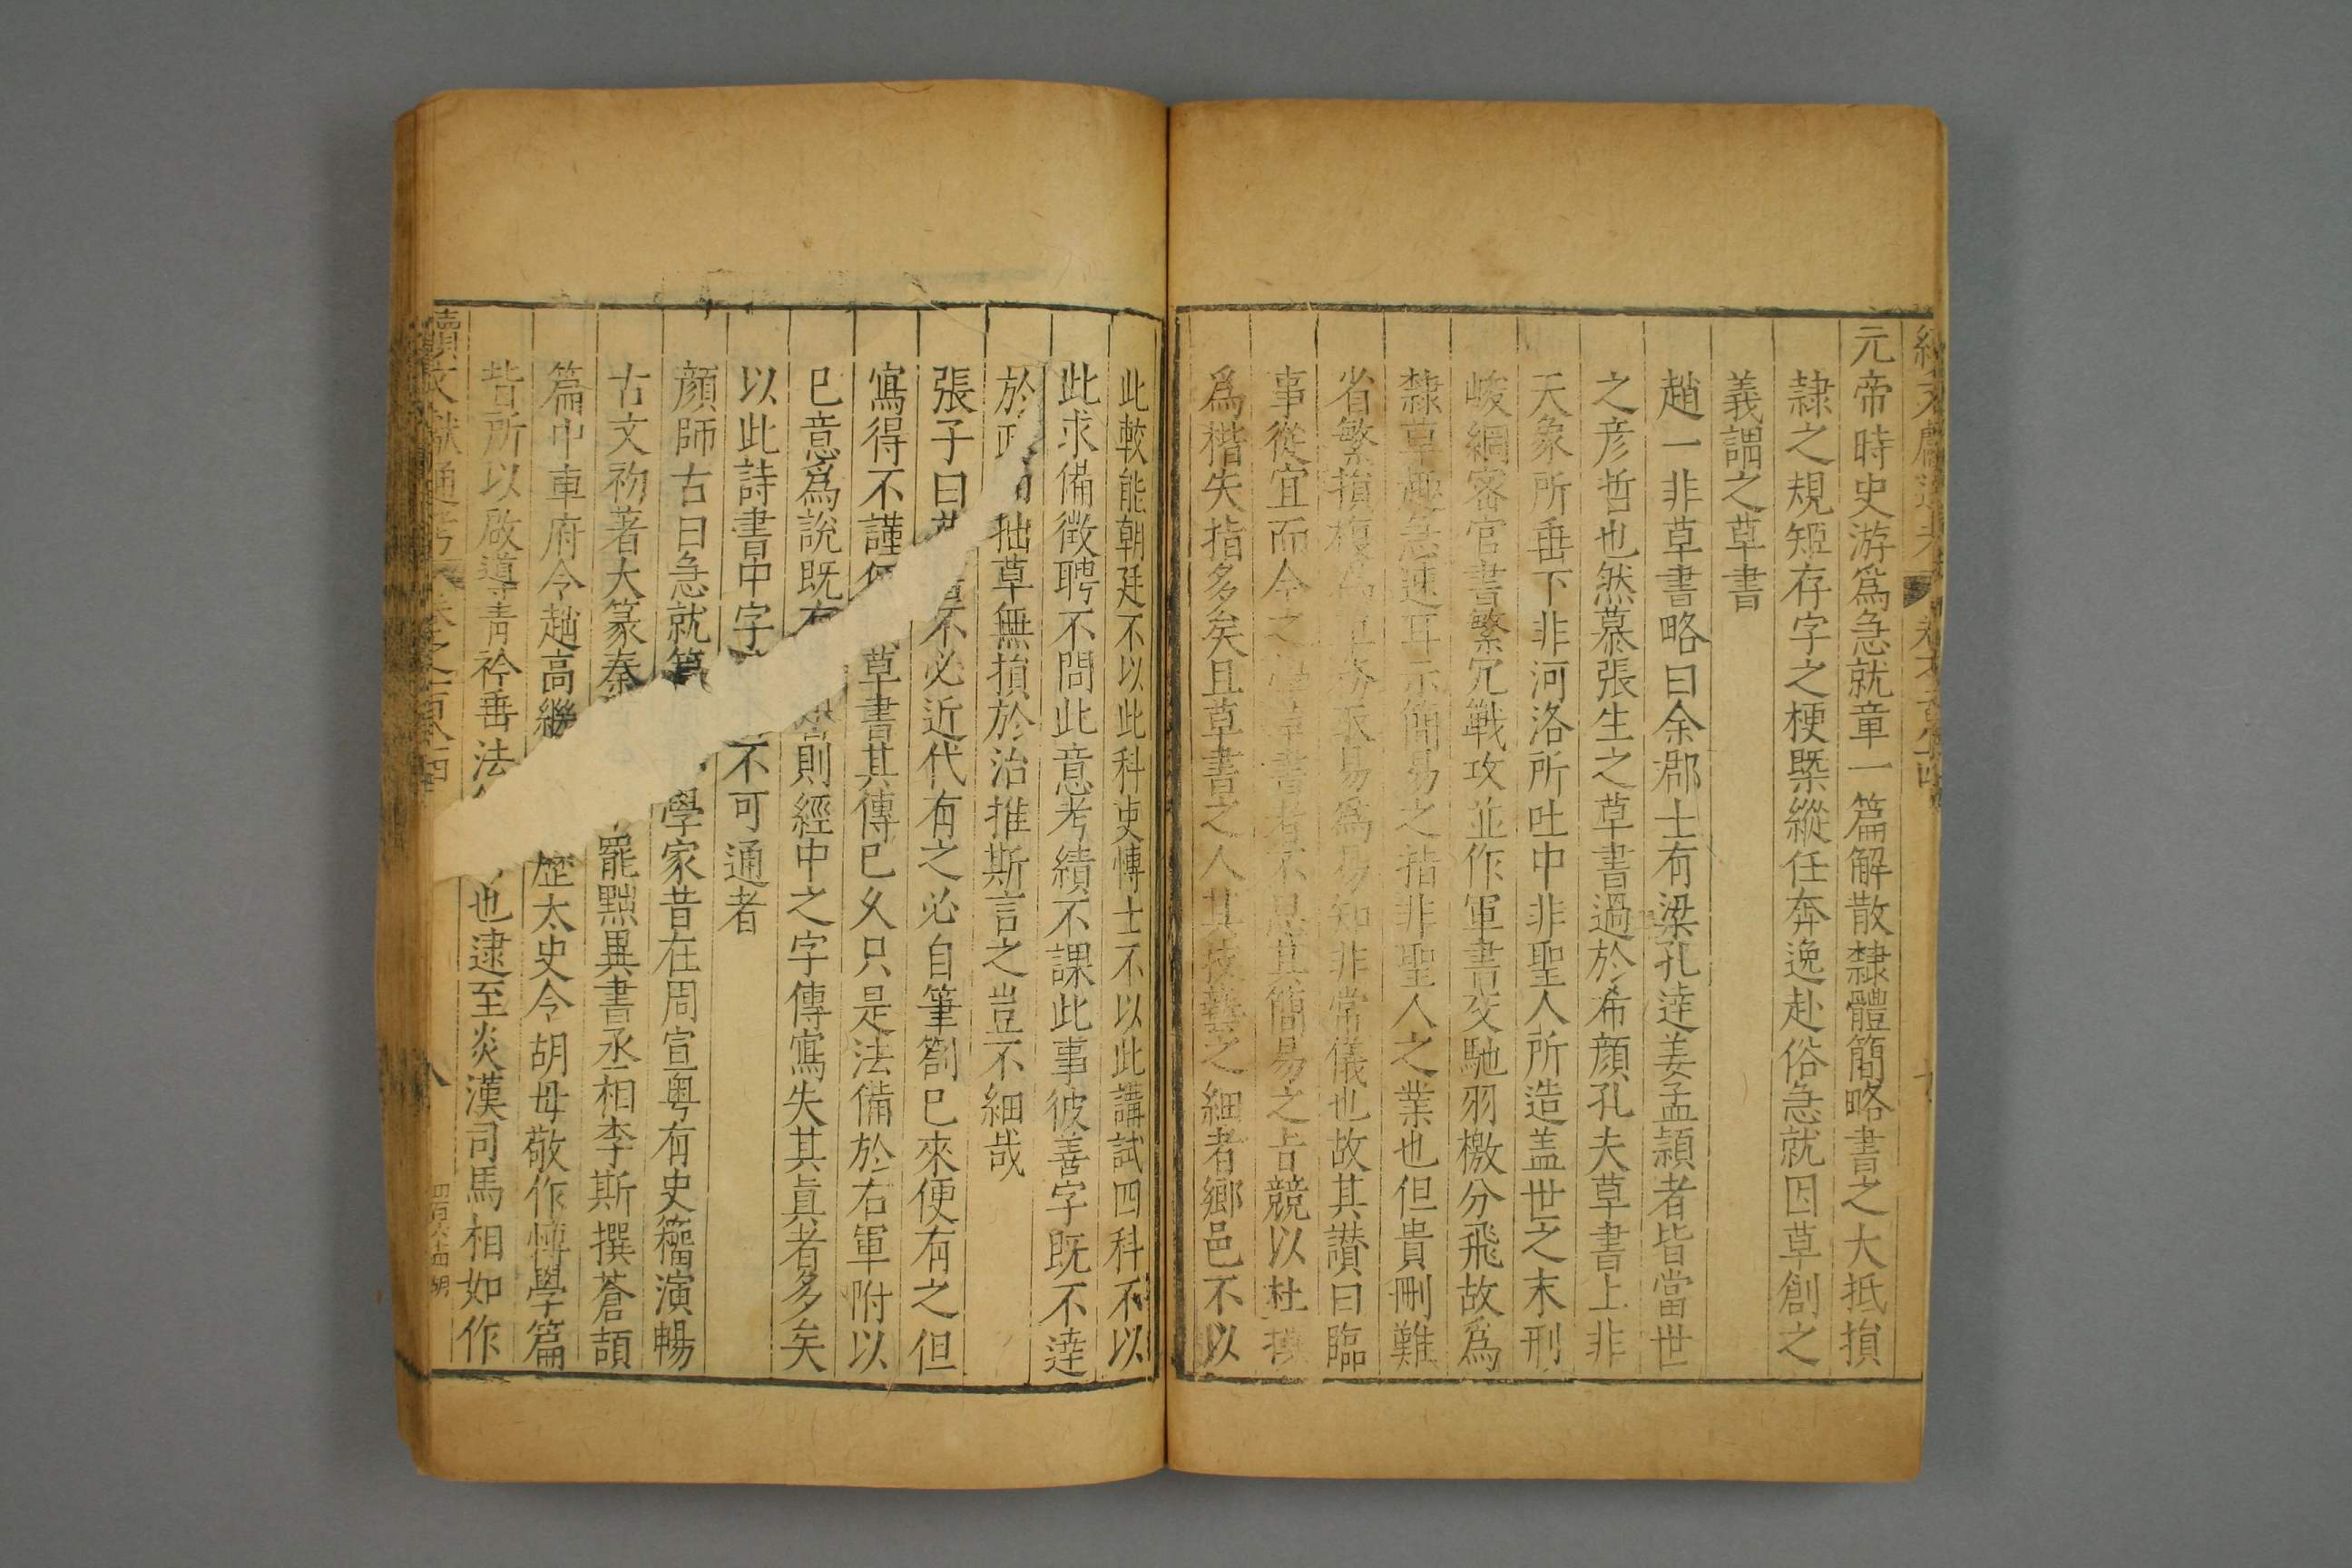 元帝時史游爲急就章一篇解散隸體簡略書之大抵損
隸之規矩存字之梗槩縱任奔逸赴俗急就因草創之
義謂之草書
趙一非草書略曰余郡士有梁孔逹姜孟頴者皆當世
之彦哲也然慕張生之草書過於希顔孔夫草書上非
天象所垂下非河洛所吐中非聖人所造盖世之末刑
峻網密官書繁冗戰攻並作軍書交馳羽檄分飛故爲
隸草趣急速耳示簡易之指非聖人之業也但貴刪難
省繁損複爲單務取易爲易知非常儀也故其讃曰臨
事從宜而今之學草書者不思其簡易之旨競以杜
爲楷失指多矣且草書之人其技藝之細者鄉邑不以
此較能朝廷不以此科吏愽士不以此講試四科不以
此求備徴聘不問此意考績不課此事彼善字既不逹
於 拙草無損於治推斯言之豈不細哉
張子曰 不必近代有之必自筆劄巳來便有之但
寫得不謹 草書其傳巳乆只是法備於右軍附以
巳意爲説既 則經中之字傳寫失其眞者多矣
以此詩書中字 不可通者
顔師古曰急就篇 學家昔在周宣粤有史籀演暢
古文初著大篆秦 罷黜異書丞相李斯撰蒼頡
篇中車府令趙高繼 歷太史令胡毋敬作愽學篇
皆所以啟導青衿垂法 也逮至炎漢司馬相如作
續文獻通考 卷之一百八十四 八